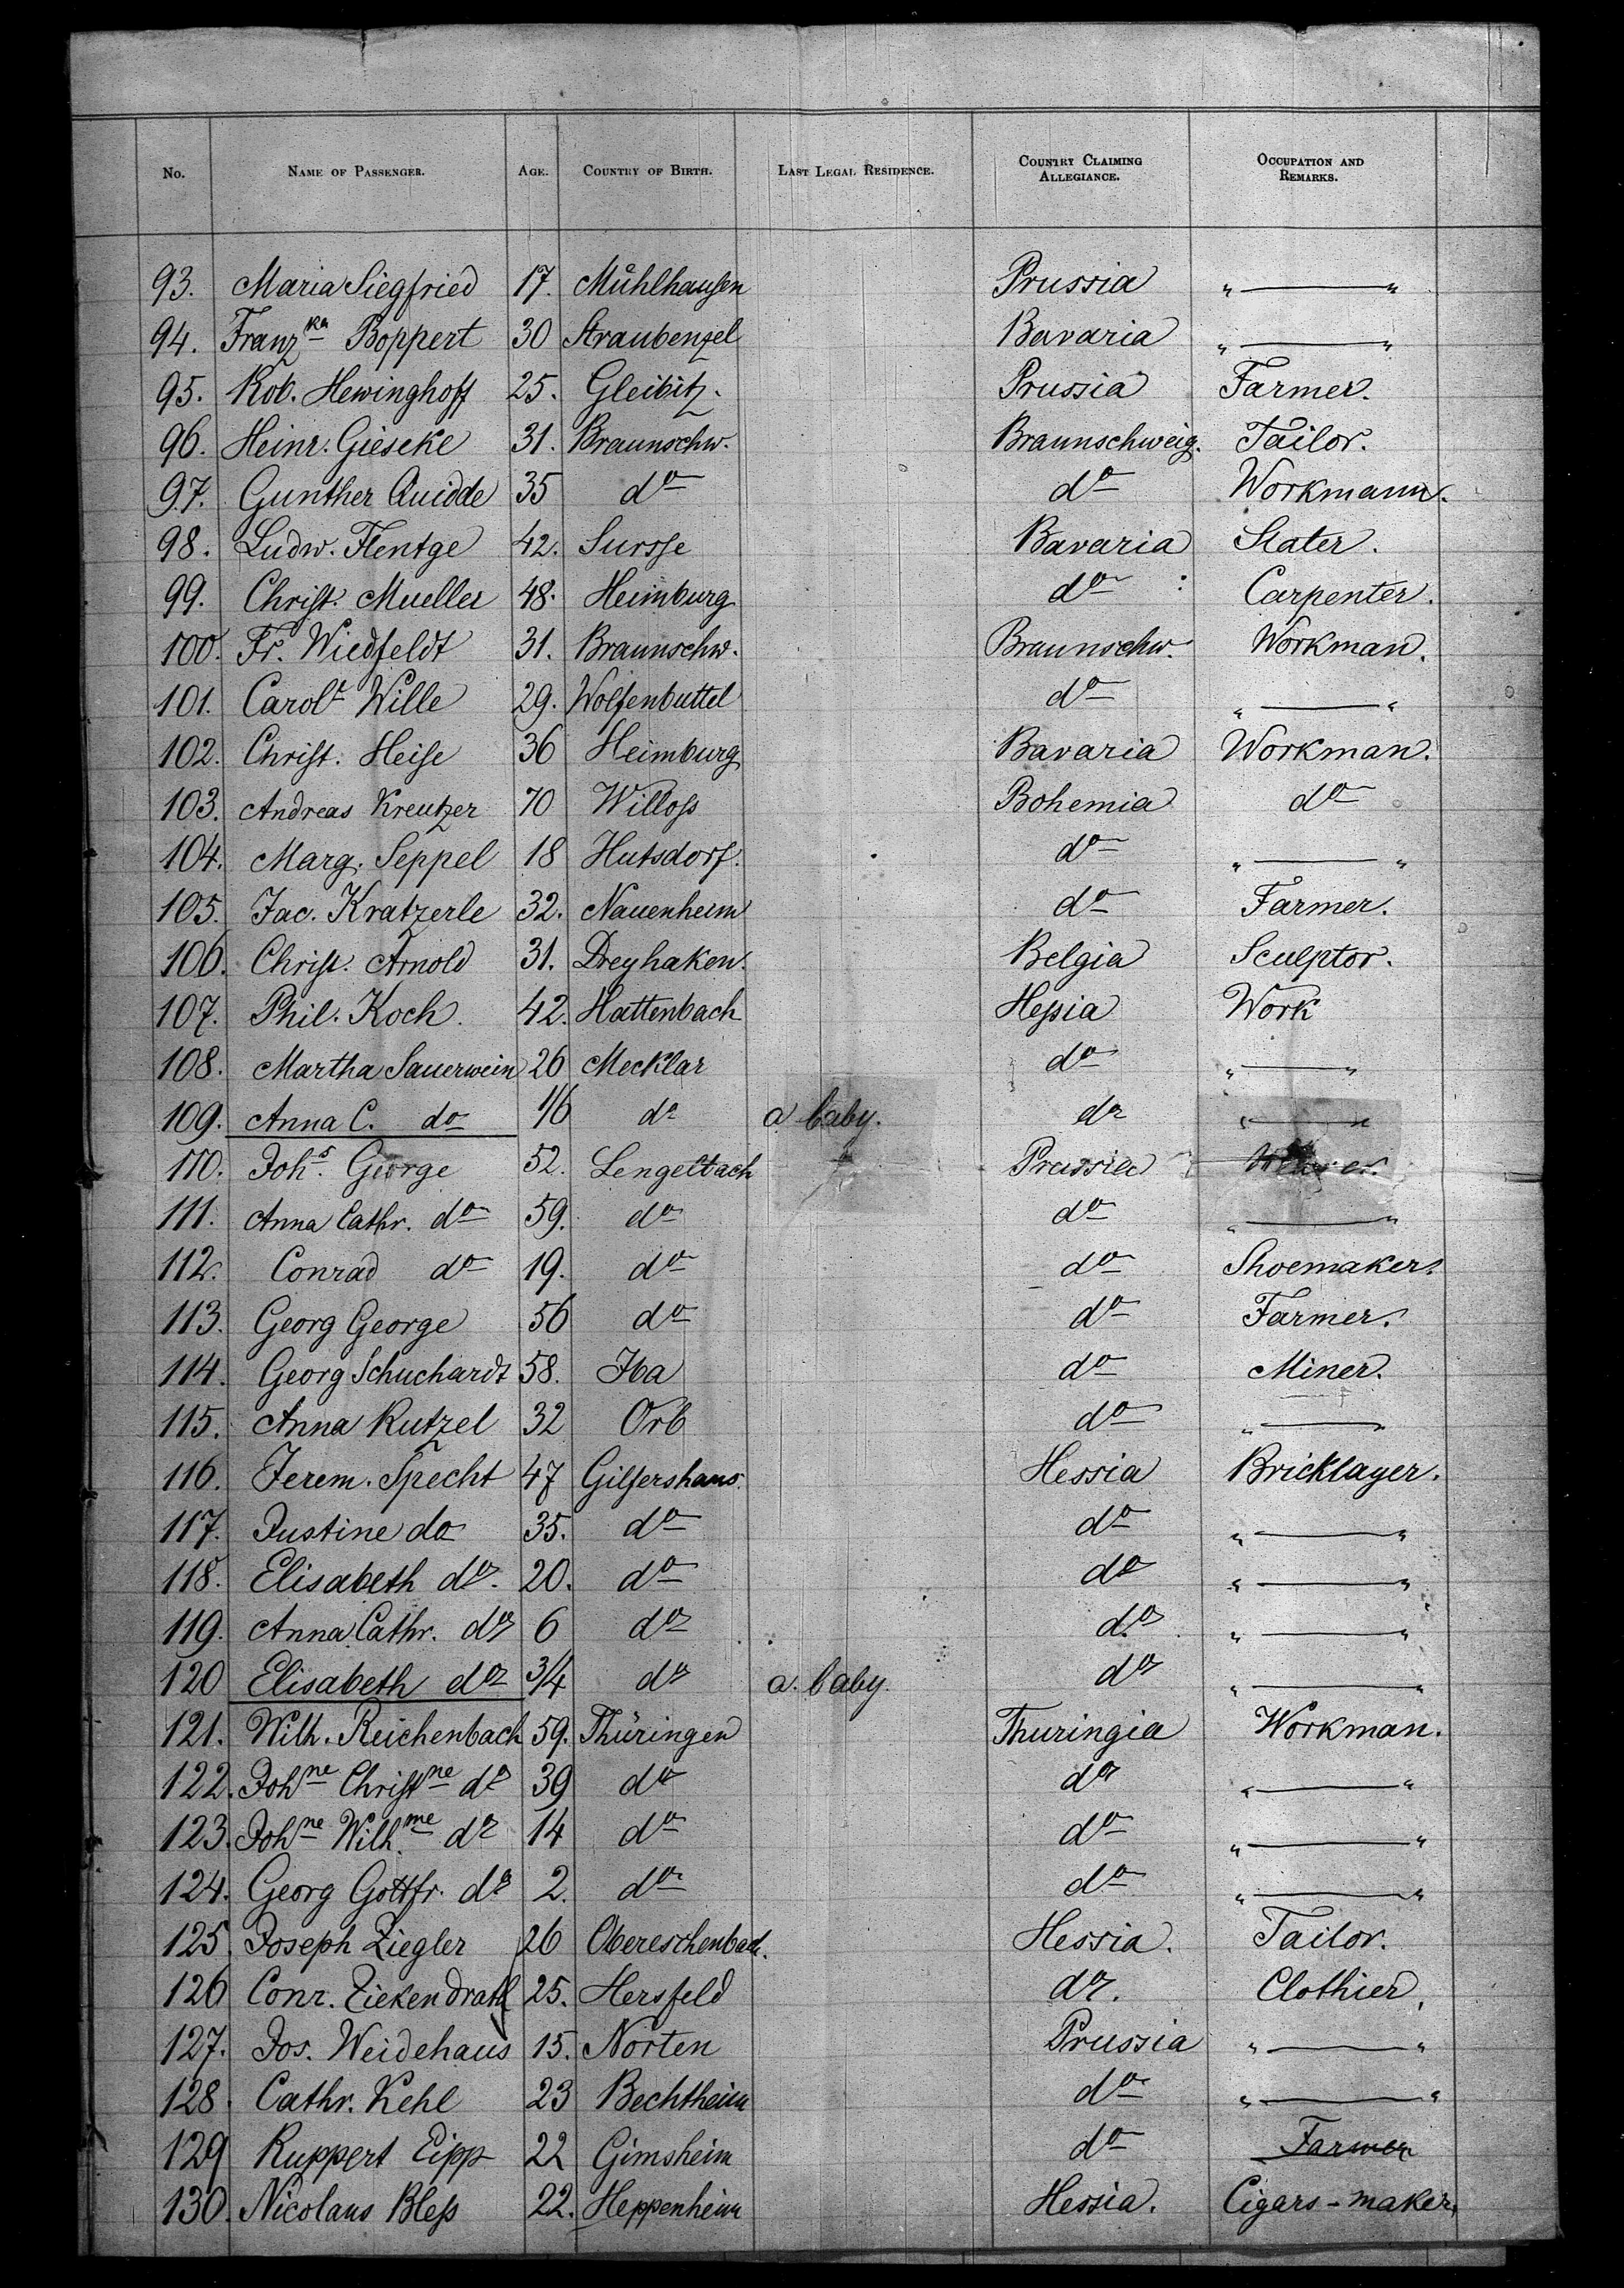 No. NAME OF PASSENGER. AGE. COUNTRY OF BIRTH. LAST LEGAL RESIDENCE. COUNTRY CLAIMING ALLEGIANCE. OCCUPATION AND REMARKS.
93. Maria Siegfried 17. Mühlhausen Prussia " — "
94. Franzka Boppert 30 Straubenzel Bavaria " — "
95. Rob. Hewinghoff 25. Gleibitz. Prussia Farmer.
96. Heinr. Gieseke 31. Braunschw. Braunschweig. Tailor.
97. Gunther Quidde 35 do do Workmann.
98. Ludw. Flentge 42. Sursse Bavaria Slater.
99. Christ. Mueller 48. Heimburg do Carpenter.
100. Fr. Wiedfeldt 31. Braunschw. Braunschw. Workman.
101. Carolt Wille 29. Wolfenbuttel do " — "
102. Christ. Heise 36 Heimburg Bavaria Workman.
103. Andreas Kreutzer 70 Willoss Bohemia do
104. Marg. Seppel 18 Hutsdorf. do " — "
105. Jac. Kratzerle 32. Nauenheim do Farmer.
106. Christ. Arnold 31. Dreyhaken. Belgia Sculptor.
107. Phil. Koch. 42. Hattenbach Hessia Work
108. Martha Sauerwein 26 Mecklar do " — "
109. Anna C. do 1/6 do a baby. do " — "
110. Johs. George 52. Lengelbach Prussia
111. Anna Cathr. do 59. do do " — "
112. Conrad do 19. do do Shoemaker.
113. Georg George 56 do do Farmer.
114. Georg Schuchardt 58. Iba do Miner.
115. Anna Rutzel 32 Orb do " — "
116. Jerem. Specht 47 Gilfershaus. Hessia Bricklayer.
117. Justine do 35. do do " — "
118. Elisabeth do. 20. do do " — "
119. Anna Cathr. do 6 do do " — "
120 Elisabeth do 3/4 do a. baby. do " — "
121. Wilh. Reichenbach 59. Thüringen Thuringia Workman.
122. Johne Christne do 39 do do " — "
123. Johne Wilh.me do 14 do do " — "
124. Georg Gottfr. do 2. do do " — "
125. Joseph Ziegler 26 Obereschenbach. Hessia. Tailor.
126 Conr. Ziekendrath 25. Hersfeld do. Clothier.
127. Jos. Weidehaus 15. Norten Prussia " — "
128. Cathr. Kehl 23 Bechtheim do " — "
129 Ruppert Eipp 22 Gimsheim do Farmer
130. Nicolaus Bless 22. Heppenheim Hessia. Cigars-maker.